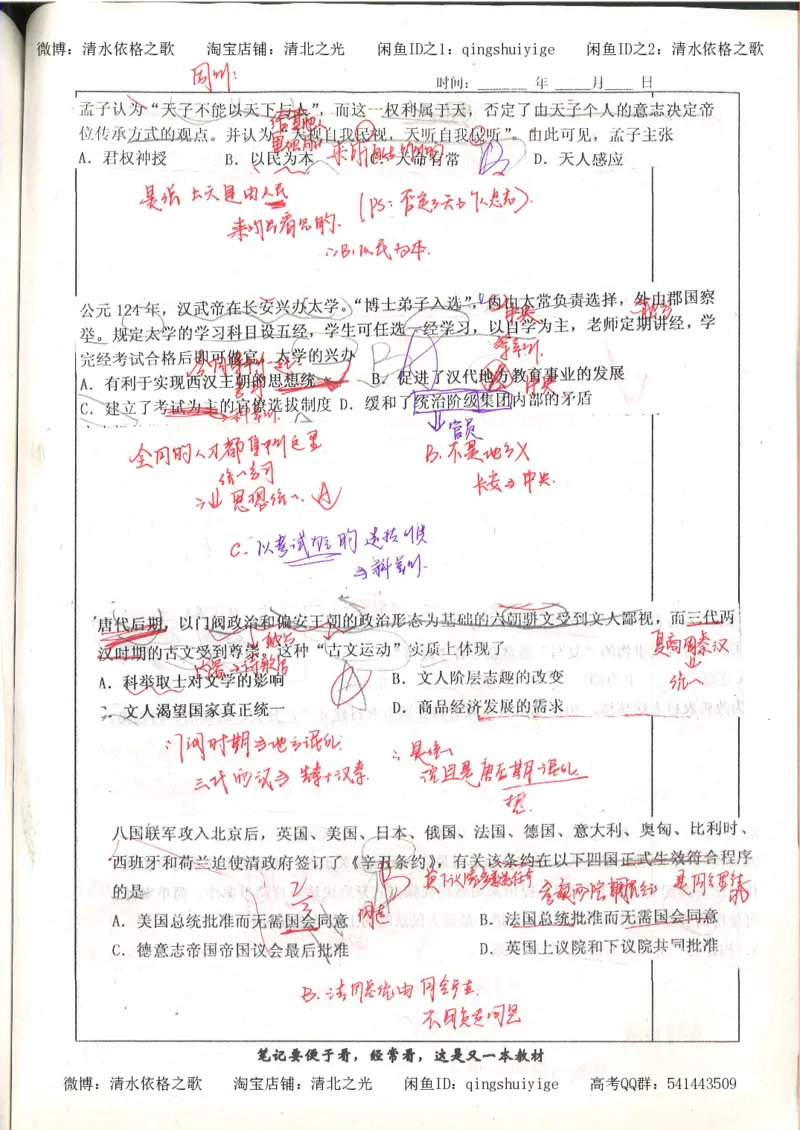 微博：清水依格之歌 淘宝店铺：清北之光 闲鱼ID之1：qingshuiyige 闲鱼ID之2：清水依格之歌
周州：
时间：______ 年 _____月____ 日
孟子认为“天子不能以天下与人”，而这一权利属于天，否定了由天子个人的意志决定帝
位传承方式的观点。并认为“天视自我民视，天听自我民听”。由此可见，孟子主张
A．君权神授 B．以民为本 C．天命有常 D．天人感应
是强 上天是由人民
来听与看见的. (PS：否定了天与个人意志).
∴B.以民为本.
公元 124 年，汉武帝在长安兴办太学。“博士弟子入选”，内由太常负责选择，外由郡国察
举。规定太学的学习科目设五经，学生可任选一经学习，以自学为主，老师定期讲经，学
完经考试合格后即可做官。太学的兴办
A．有利于实现西汉王朝的思想统一 B．促进了汉代地方教育事业的发展
C．建立了考试为主的官僚选拔制度 D．缓和了统治阶级集团内部的矛盾
官员
全国的人才都集中到这里 B.不是地方X
统一学习 长安→中央.
⇒业 思想统一. A
C.以考试为主的选拔
⇒科举制.
唐代后期，以门阀政治和偏安王朝的政治形态为基础的六朝骈文受到文人鄙视，而三代两
汉时期的古文受到尊崇。这种“古文运动”实质上体现了
夏商周秦汉
统一
A．科举取士对文学的影响 B．文人阶层志趣的改变
C．文人渴望国家真正统一 D．商品经济发展的需求
∴门阀时期⇒地方混乱. ∴是统一
三代两汉⇒ 秦+汉秦. 并且是唐后期混乱
八国联军攻入北京后，英国、美国、日本、俄国、法国、德国、意大利、奥匈、比利时、
西班牙和荷兰迫使清政府签订了《辛丑条约》，有关该条约在以下四国正式生效符合程序
的是
A．美国总统批准而无需国会同意 B．法国总统批准而无需国会同意
C．德意志帝国帝国议会最后批准 D．英国上议院和下议院共同批准
B.法国总统由国会产生.
不用负责同意
笔记要便于看，经常看，这是又一本教材
微博：清水依格之歌 淘宝店铺：清北之光 闲鱼ID：qingshuiyige 高考QQ群：541443509